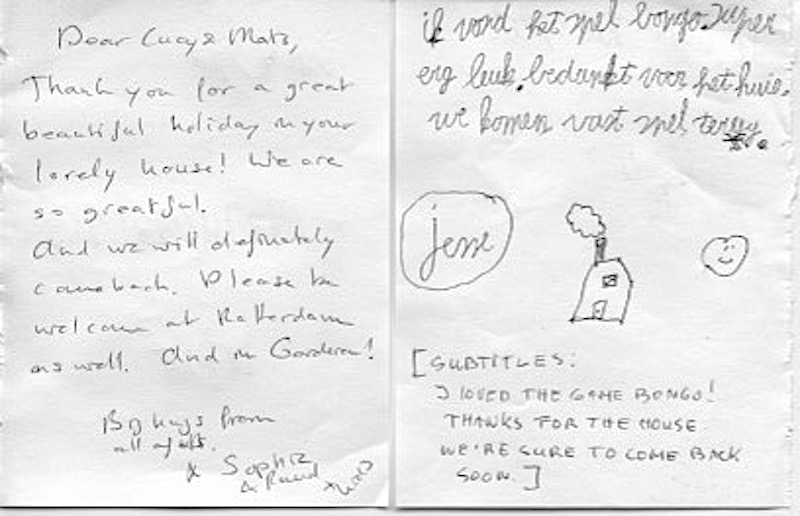 Dear Lucy & Mats,
Thank you for a great
beautiful holiday in your
lovely house! We are
so greatful.
And we will definately
come back. Please be
welcome at Rotterdam
as well. And in Garderen!
Big hugs from
all of us.
x Sophie
& Ruud
ik vond het spel bongo super
erg leuk. bedankt voor het huis.
we komen vast snel terug
jesse
[SUBTITLES:
I LOVED THE GAME BONGO!
THANKS FOR THE HOUSE
WE'RE SURE TO COME BACK
SOON.]